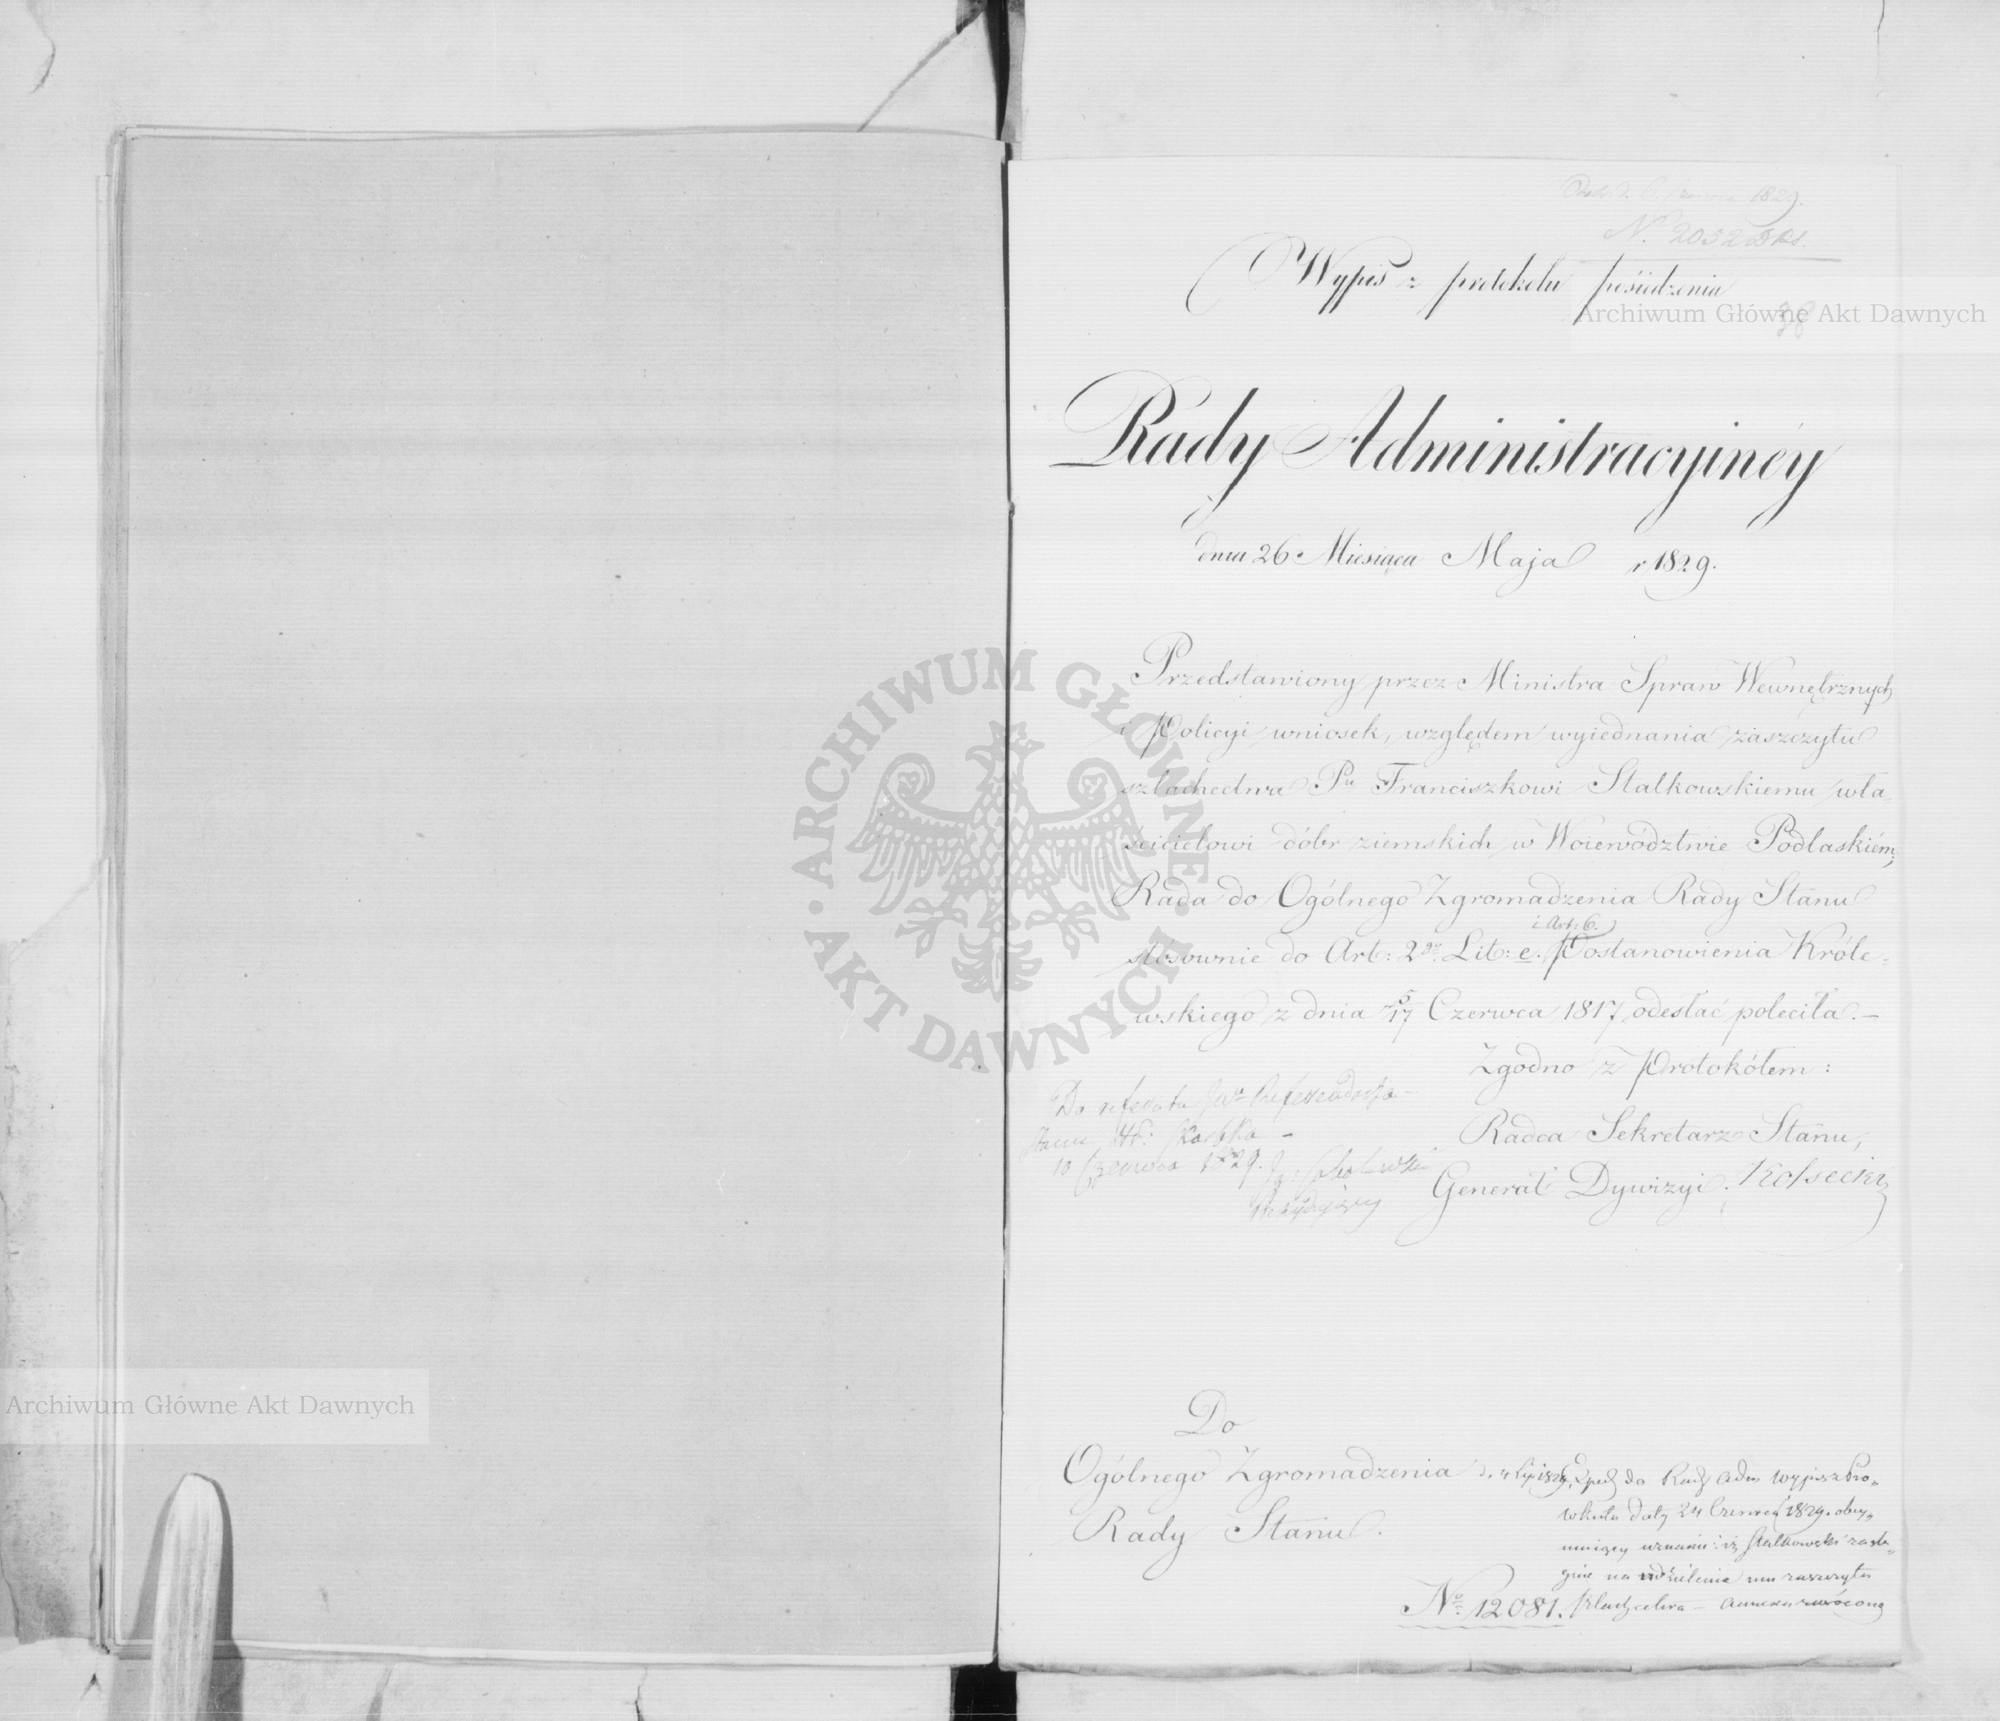 1829.
N. 2052
Wypis z protokołu posiedzenia
38
Rady Administracyinéy
dnia 26 Miesiąca Maja r 1829.
Przedstawiony przez Ministra Spraw Wewnętrznych
i Policyi wniosek, względem wyiednania zaszczytu
szlachectwa Pu Franciszkowi Stalkowskiemu wła-
ścicielowi dóbr ziemskich w Woiewództwie Podlaskiém;
Rada do Ogólnego Zgromadzenia Rady Stanu
i Art: 6.
stósownie do Art: 2go Lit: e. Postanowienia Króle-
wskiego z dnia 5/17 Czerwca 1817 odesłać poleciła.—
Zgodno z Protokółem:
Radca Sekretarz Stanu,
Generał Dywizyi. Kossecki
Do referatu JW Referendarza
Stanu Skarbka –
10 Czerwca 1829.
Prezydujący
Do
Ogólnego Zgromadzenia
Rady Stanu.
d. 4 Lip: 1829, Exped do Rady Adm Wypis z Pro-
tokułu daty 24 Czerwca 1829. obey-
muiący uznanie: iż Stalkowski zasłu-
guie na udzielenie mu zaszczytu
szlachectwa – Annexa zwrócono
No. 12081.
Archiwum Główne Akt Dawnych
ARCHIWUM GŁÓWNE · AKT DAWNYCH ·
Archiwum Główne Akt Dawnych